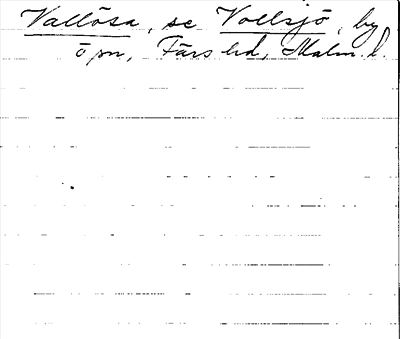 Vallösa, se Vollsjö, by
ö sn, Färs hd, Malm. l.